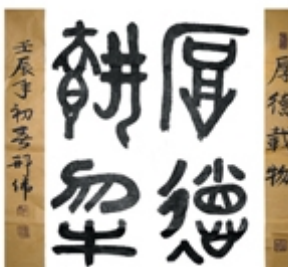 厚德載物
厚德
載物
壬辰年初春邢伟